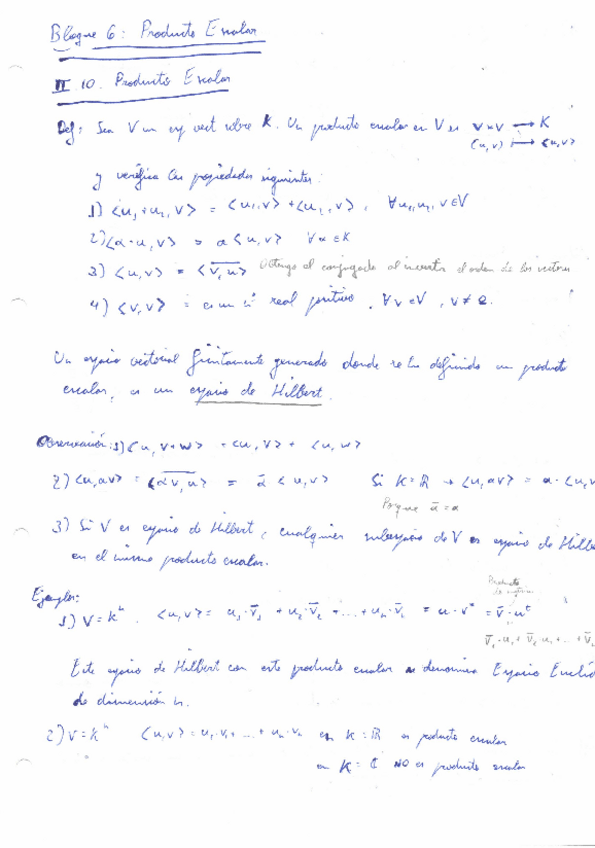 Bloque 6: Producto Escalar
II 10. Producto Escalar
Def: Sea V un esp vect sobre K. Un producto escalar en V es V×V → K
(u,v) ↦ <u,v>
y verifica las propiedades siguientes:
1) <u₁+u₂,v> = <u₁,v> + <u₂,v>, ∀u₁,u₂,v∈V
2) <α·u,v> = α<u,v> ∀α∈K
3) <u,v> = <\overline{v,u}> Obtengo el conjugado al invertir el orden de los vectores
4) <v,v> = es un nº real positivo, ∀v∈V, v≠0.
Un espacio vectorial finitamente generado donde se ha definido un producto
escalar, es un espacio de Hilbert.
Observación: 1) <u,v+w> = <u,v> + <u,w>
2) <u,αv> = <\overline{αv,u}> = ᾱ<u,v> Si K=ℝ → <u,αv> = α·<u,v
Porque ᾱ=α
3) Si V es espacio de Hilbert, cualquier subespacio de V es espacio de Hilbe
en el mismo producto escalar.
Ejemplos:
Producto
1) V=kⁿ. <u,v> = u₁·v̄₁ + u₂·v̄₂ + ... + uₙ·v̄ₙ = u·v* = v̄·uᵗ
v̄₁·u₁ + v̄₂·u₂ + ... + v̄ₙ
Este espacio de Hilbert con este producto escalar se denomina Espacio Euclíd
de dimensión n.
2) V=kⁿ <u,v> = u₁·v₁ + ... + uₙ·vₙ en K=ℝ es producto escalar
en K=ℂ NO es producto escalar